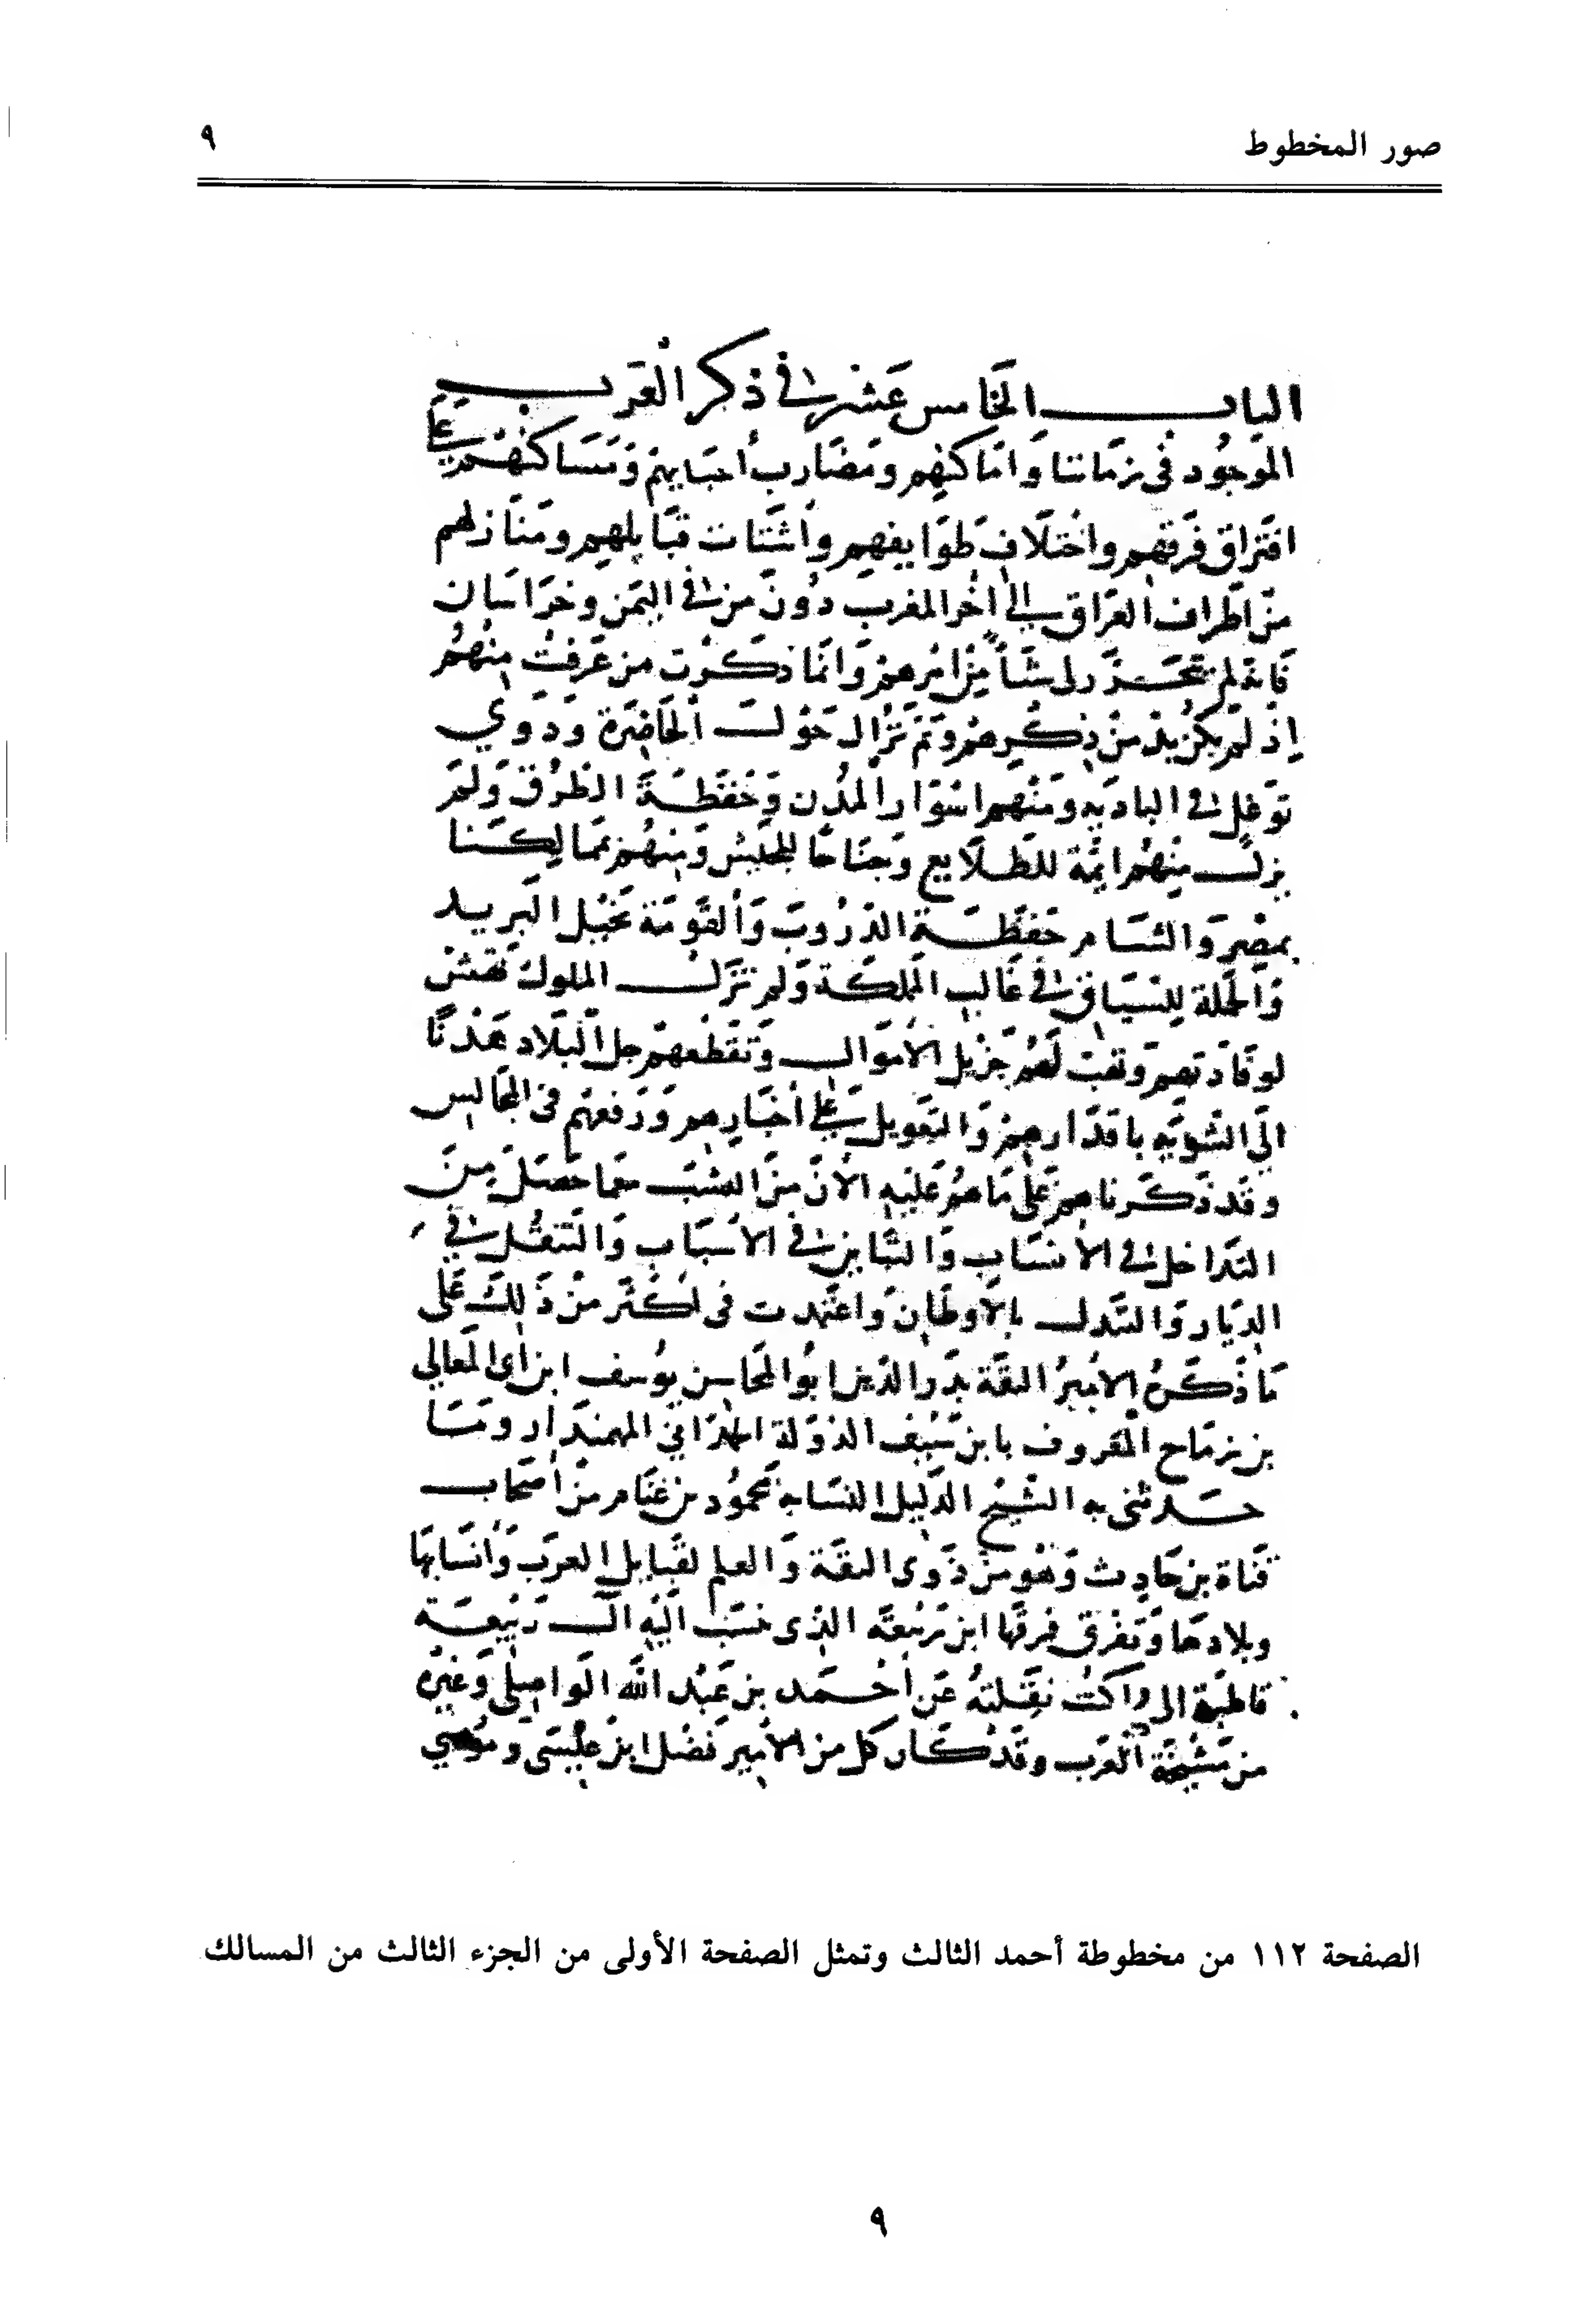 صور المخطوط ٩
الباب الخامس عشر في ذكر العرب
الموجود في زماننا وأماكنهم ومضارب أحيائهم ومساكنهم على
افتراق فرقهم واختلاف طوايفهم وأشتات قبايلهم ومنازلهم
من أطراف العراق إلى آخر المغرب دون من في اليمن وخراسان
فإنه لم يتحرر لي شأ من أمرهم وإنما ذكرت من عرفت منهم
إذ لم يكن بد من ذكرهم ولم تزال حول الحاضرة وذوي
توغل في البادية ومنهم أسوار المدن وحفظة الطرق ولم
يزل منهم أئمة للطلايع وجناحا للجيش ومنهم بممالكنا
بمصر والشام حفظة الدروب والقومة بخيل البريد
والحملة للسياق في غالب المملكة ولم تزل الملوك تهش
لوفادتهم وتهب لهم جزيل الأموال وتقطعهم جل البلاد هذا
إلى التنويه بأقدارهم والتعويل على أخبارهم ورفعهم في المجالس
وقد ذكرناهم على ما هم عليه الآن من النسب مما حصل من
التداخل في الأنساب والتباين في الأسباب والتنقل في
الديار والتبدل بالأوطان واعتمدت في أكثر من ذلك على
ما ذكره الأمير الثقة بدر الدين أبو المحاسن يوسف ابن أبي المعالي
بن زماخ المعروف بابن سيف الدولة الحمداني المهمندار وما
حدثني به الشيخ الدليل النسابة محمود بن غنام من أصحاب
قناة بن حارث وهو من ذوي الثقة والعلم لقبايل العرب وأنسابها
وبلادها وتفرق فرقها ابن ربيعة الذي ينسب إليه آل ربيعة
قاطبة إلى ما كنت نقلته عن أحمد بن عبد الله الواصلي وغيره
من مشيخة العرب وقد كان كل من الأمير فضل ابن عيسى وموسى
الصفحة ١١٢ من مخطوطة أحمد الثالث وتمثل الصفحة الأولى من الجزء الثالث من المسالك
٩